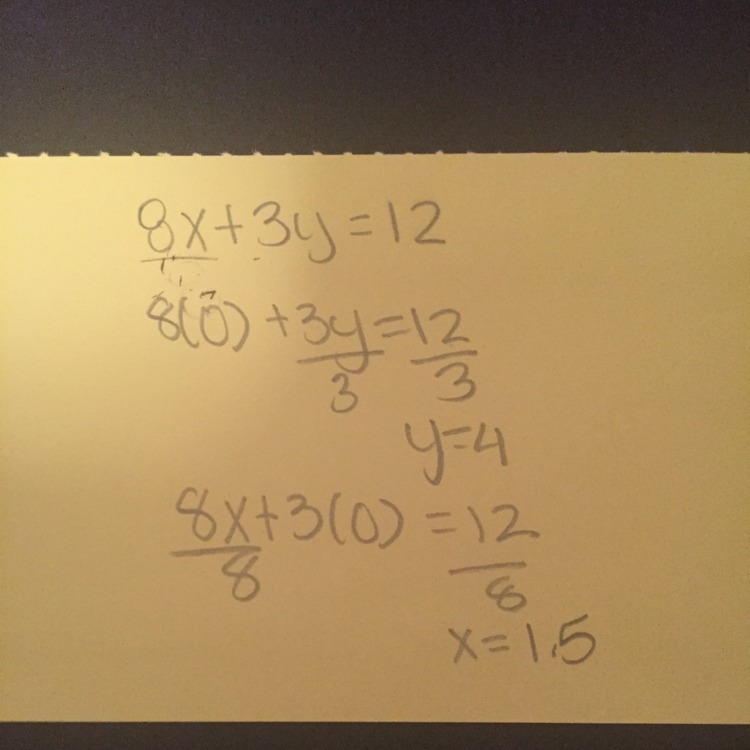 8x+3y=12
8(0)+3y=12
3 3
y=4
8x+3(0)=12
8 8
x=1.5